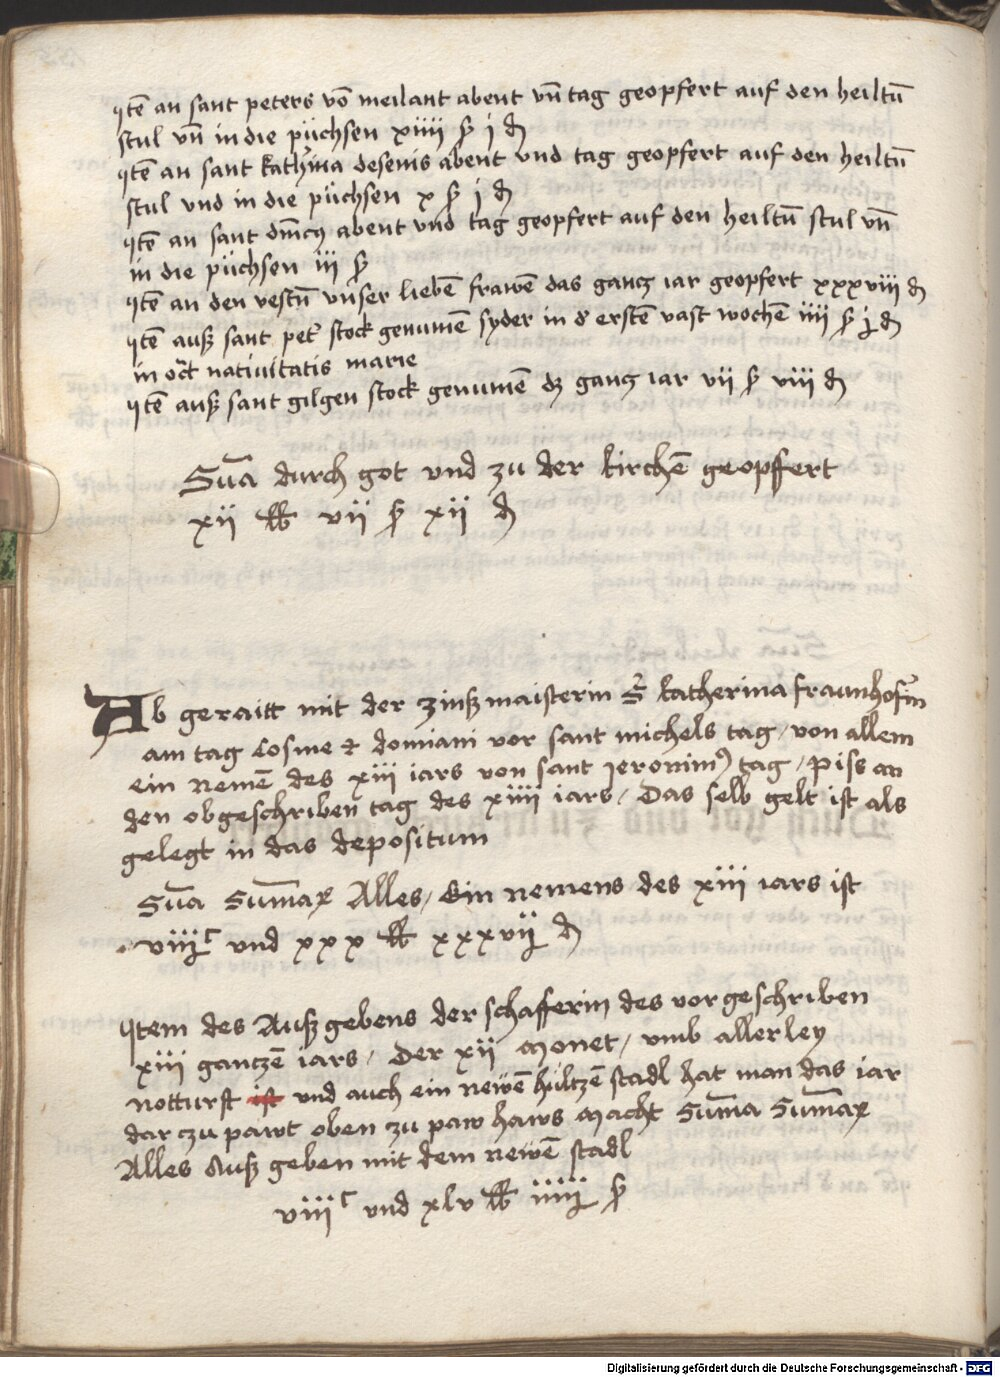 Itē an sant peters vō meilant abent vn̄ tag geopfert auf den heiltū
stul vn̄ in die püchsen xiiii ß j ₰
Itē an sant kathīna desenis abent vnd tag geopfert auf den heiltū
stul vnd in die püchsen x ß j ₰
Itē an sant dm̄cꝫ abent vnd tag geopfert auf den heiltū stul vn̄
in die püchsen iii ß
Itē an den vestn̄ vnser liebē frawē das gancz iar geopfert xxxviii ₰
Itē auß sant pet' stock genumē syder in d' erstē vast wochē iiii ß j ₰
in oct̄ nativitatis marie
Itē auß sant gilgen stock genumē dz gancz iar vii ß viii ₰
Sūa durch got vnd zu der kirchē geopffert
xii ℔ vii ß xii ₰
Ab geraitt mit der zinßmaisterin S̄ katherina fraunhof'in
am tag Cosme et domiani vor sant michels tag / von allem
ein nemē des xiii iars von sant jeronimꝰ tag / piss an
den obgeschriben tag des xiiii iars / Das selb gelt ist als
gelegt in das depositum
Sūa Sūmaꝝ Alles / Ein nemens des xiii iars ist
viiijᶜ vnd xxx ℔ xxxvij ₰
Item des Außgebens der schafferin des vorgeschriben
xiii ganczē iars / Der xii monet / vmb allerley
notturft ist vnd auch ein newē hultzē stadl hat man das iar
dar zu pawt oben zu paw haws macht Sūma Sūmaꝝ
Alles Auß geben mit dem newē stadl
viiiᶜ vnd xlv ℔ iiiij ß
Digitalisierung gefördert durch die Deutsche Forschungsgemeinschaft - DFG